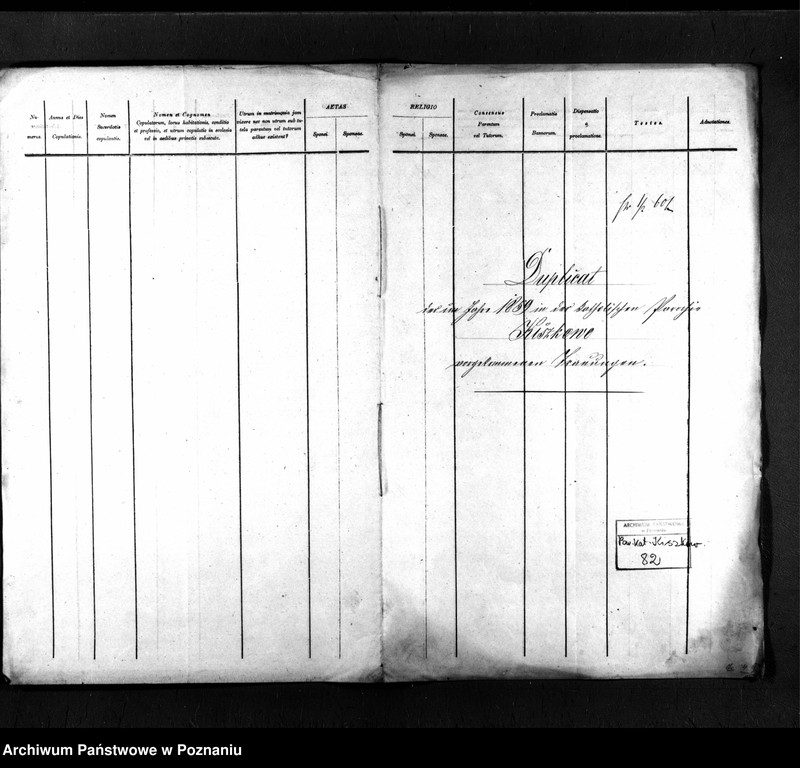 Nu-
merus
Annus et Dies
Copulationis.
Nomen
Sacerdotis
copulantis.
Nomen et Cognomen
Copulatorum, locus habitationis, conditio
et professio, et utrum copulatio in ecclesia
vel in aedibus privatis subsecuta.
Utrum in matrimonio jam
vixere nec non utrum sub tu-
tela parentum vel tutorum
adhuc existent?
AETAS
Sponsi.
Sponsae.
RELIGIO
Sponsi.
Sponsae.
Consensus
Parentum
vel Tutorum.
Proclamatio
Bannorum.
Dispensatio
a
proclamatione.
Testes
Adnotationes.
Duplicat
der im Jahre 1859 in der katholischen Parochie
Kiszkowo
vorgekommenen Trauungen.
ARCHIWUM PAŃSTWOWE
w Poznaniu
Par. kat. Kiszkowo.
82
Archiwum Państwowe w Poznaniu